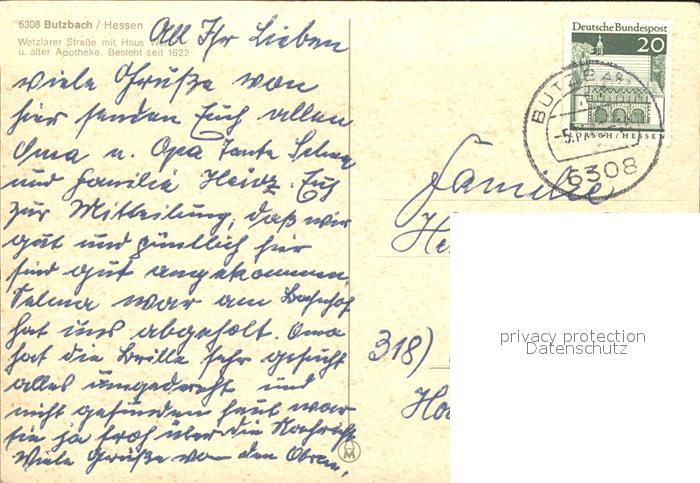 6308 Butzbach / Hessen
Wetzlarer Straße mit Haus
u. alter Apotheke. Besteht seit 1622
All Ihr Lieben
viele Grüße von
hier senden Euch allen
Oma u. Opa Tante Selma
und Familie Heinz. Euch
zur Mitteilung, daß wir
gut und pünktlich hier
sind gut angekommen,
Selma war am Bahnhof
hat uns abgeholt. Oma
hat die Brille sehr gesucht
alles umgedreht und
nicht gefunden heut war
sie ja froh über die Nachricht
Viele Grüße von den Obren,
Deutsche Bundespost
20
LORSCH / HESSEN
BUTZBACH
6308
Familie
He
318)
privacy protection
Datenschutz